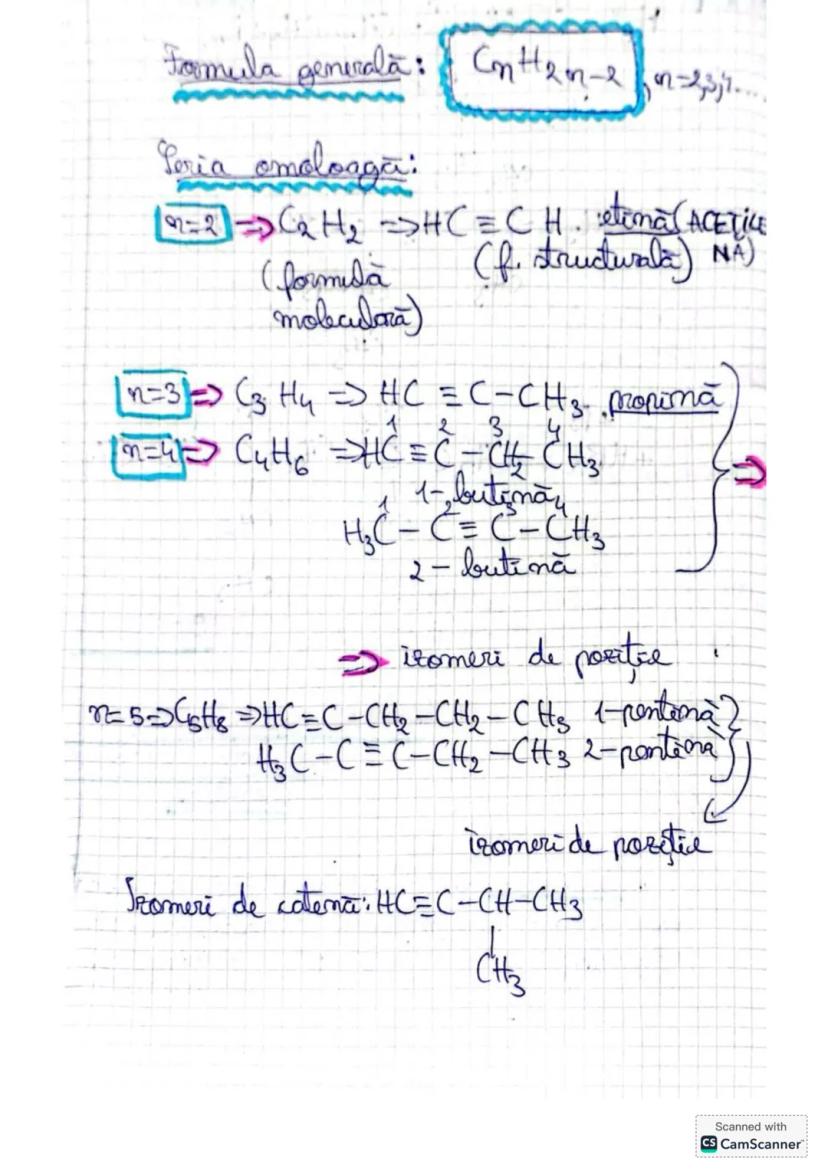 Formula generală: CnH2n-2, n=2,3,4....
Seria omoloagă:
n=2 ⇒ C2H2 ⇒ HC≡CH. etină (ACETILE
NĂ)
(formulă (f. structurală)
moleculară)
n=3 ⇒ C3H4 ⇒ HC≡C-CH3. propină
1 2 3 4
n=4 ⇒ C4H6 ⇒ HC≡C-CH2-CH3
1-butină
1 2 3 4
H3C-C≡C-CH3
2-butină
⇒ izomeri de poziție
n=5 ⇒ C5H8 ⇒ HC≡C-CH2-CH2-CH3 1-pentină
H3C-C≡C-CH2-CH3 2-pentină
izomeri de poziție
Izomeri de catenă: HC≡C-CH-CH3
|
CH3
Scanned with
CS CamScanner